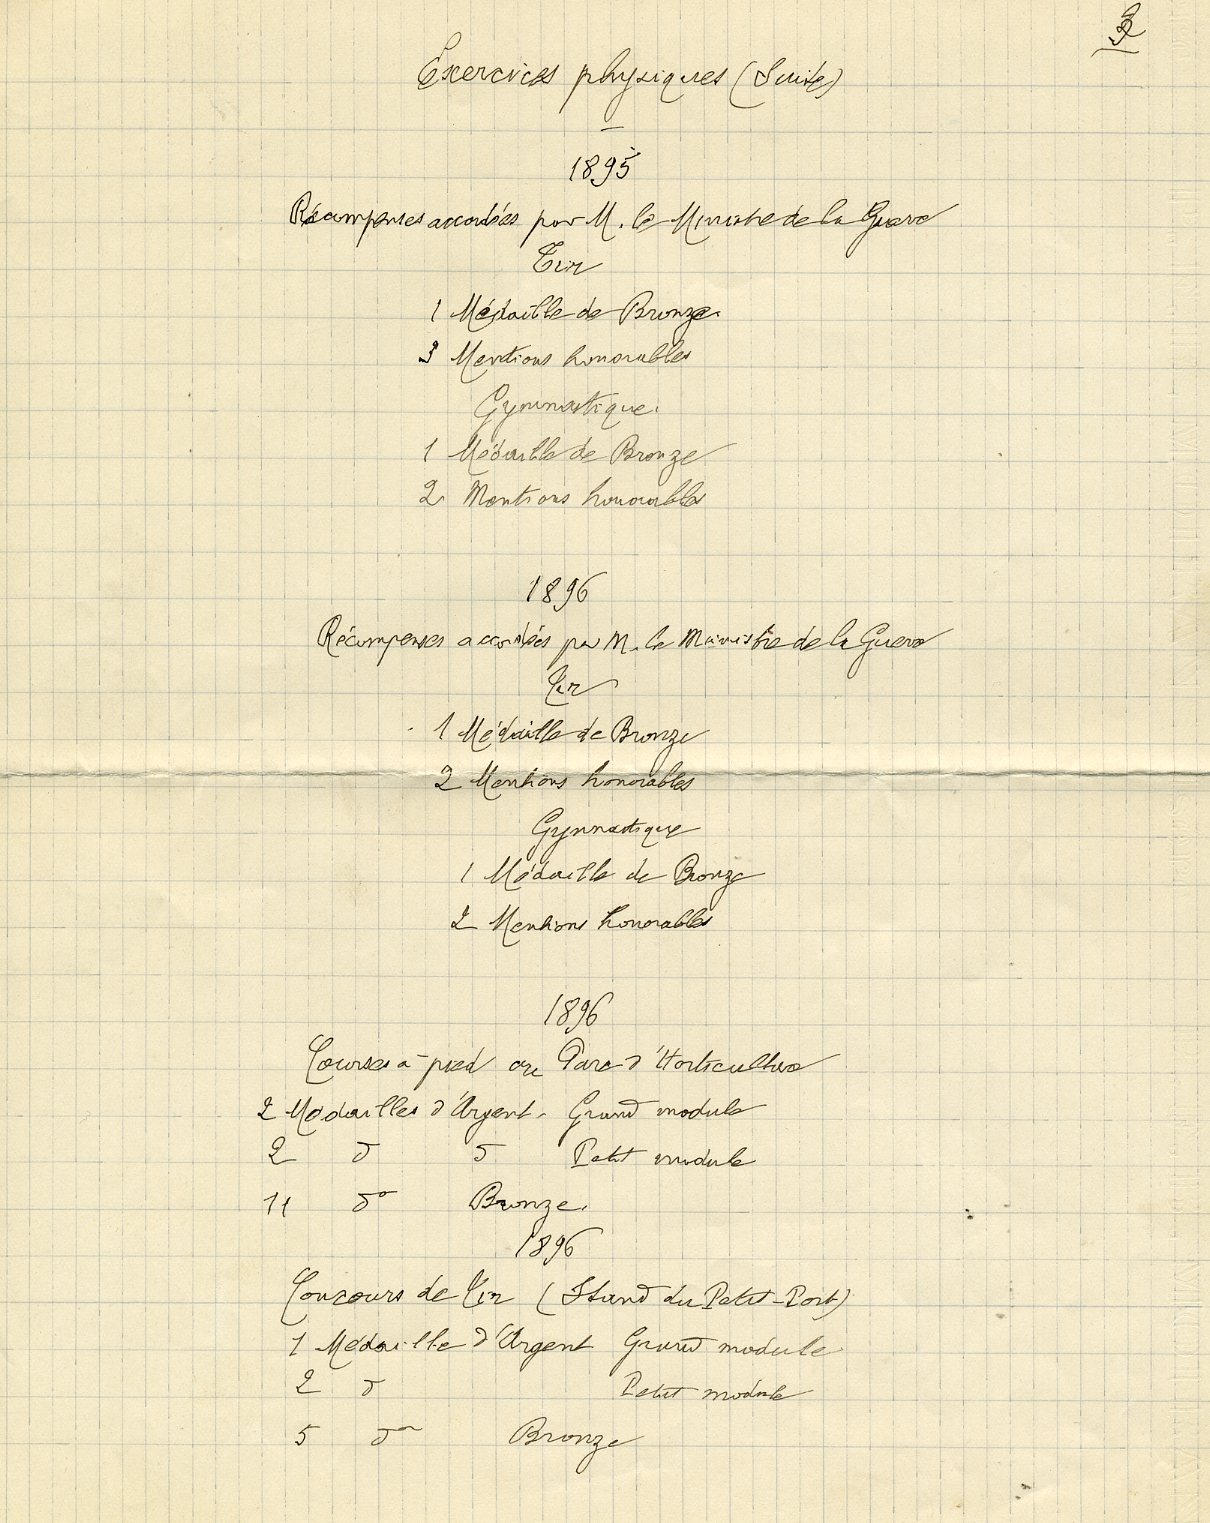 Exercices physiques (Suite)
1895
Récompenses accordées par M. le Ministre de la Guerre
Tir
1 Médaille de Bronze.
3 Mentions honorables
Gymnastique.
1 Médaille de Bronze
2 Mentions honorables
1896
Récompenses accordées par M. le Ministre de la Guerre
Tir
1 Médaille de Bronze
2 Mentions honorables
Gymnastique
1 Médaille de Bronze
2 Mentions honorables
1896
Courses à pied au Parc d'Horticulture
2 Médailles d'Argent. Grand module
2 d d Petit module
11 do Bronze.
1896
Concours de Tir (Stand du Petit-Port)
1 Médaille d'Argent Grand module
2 d Petit module
5 do Bronze